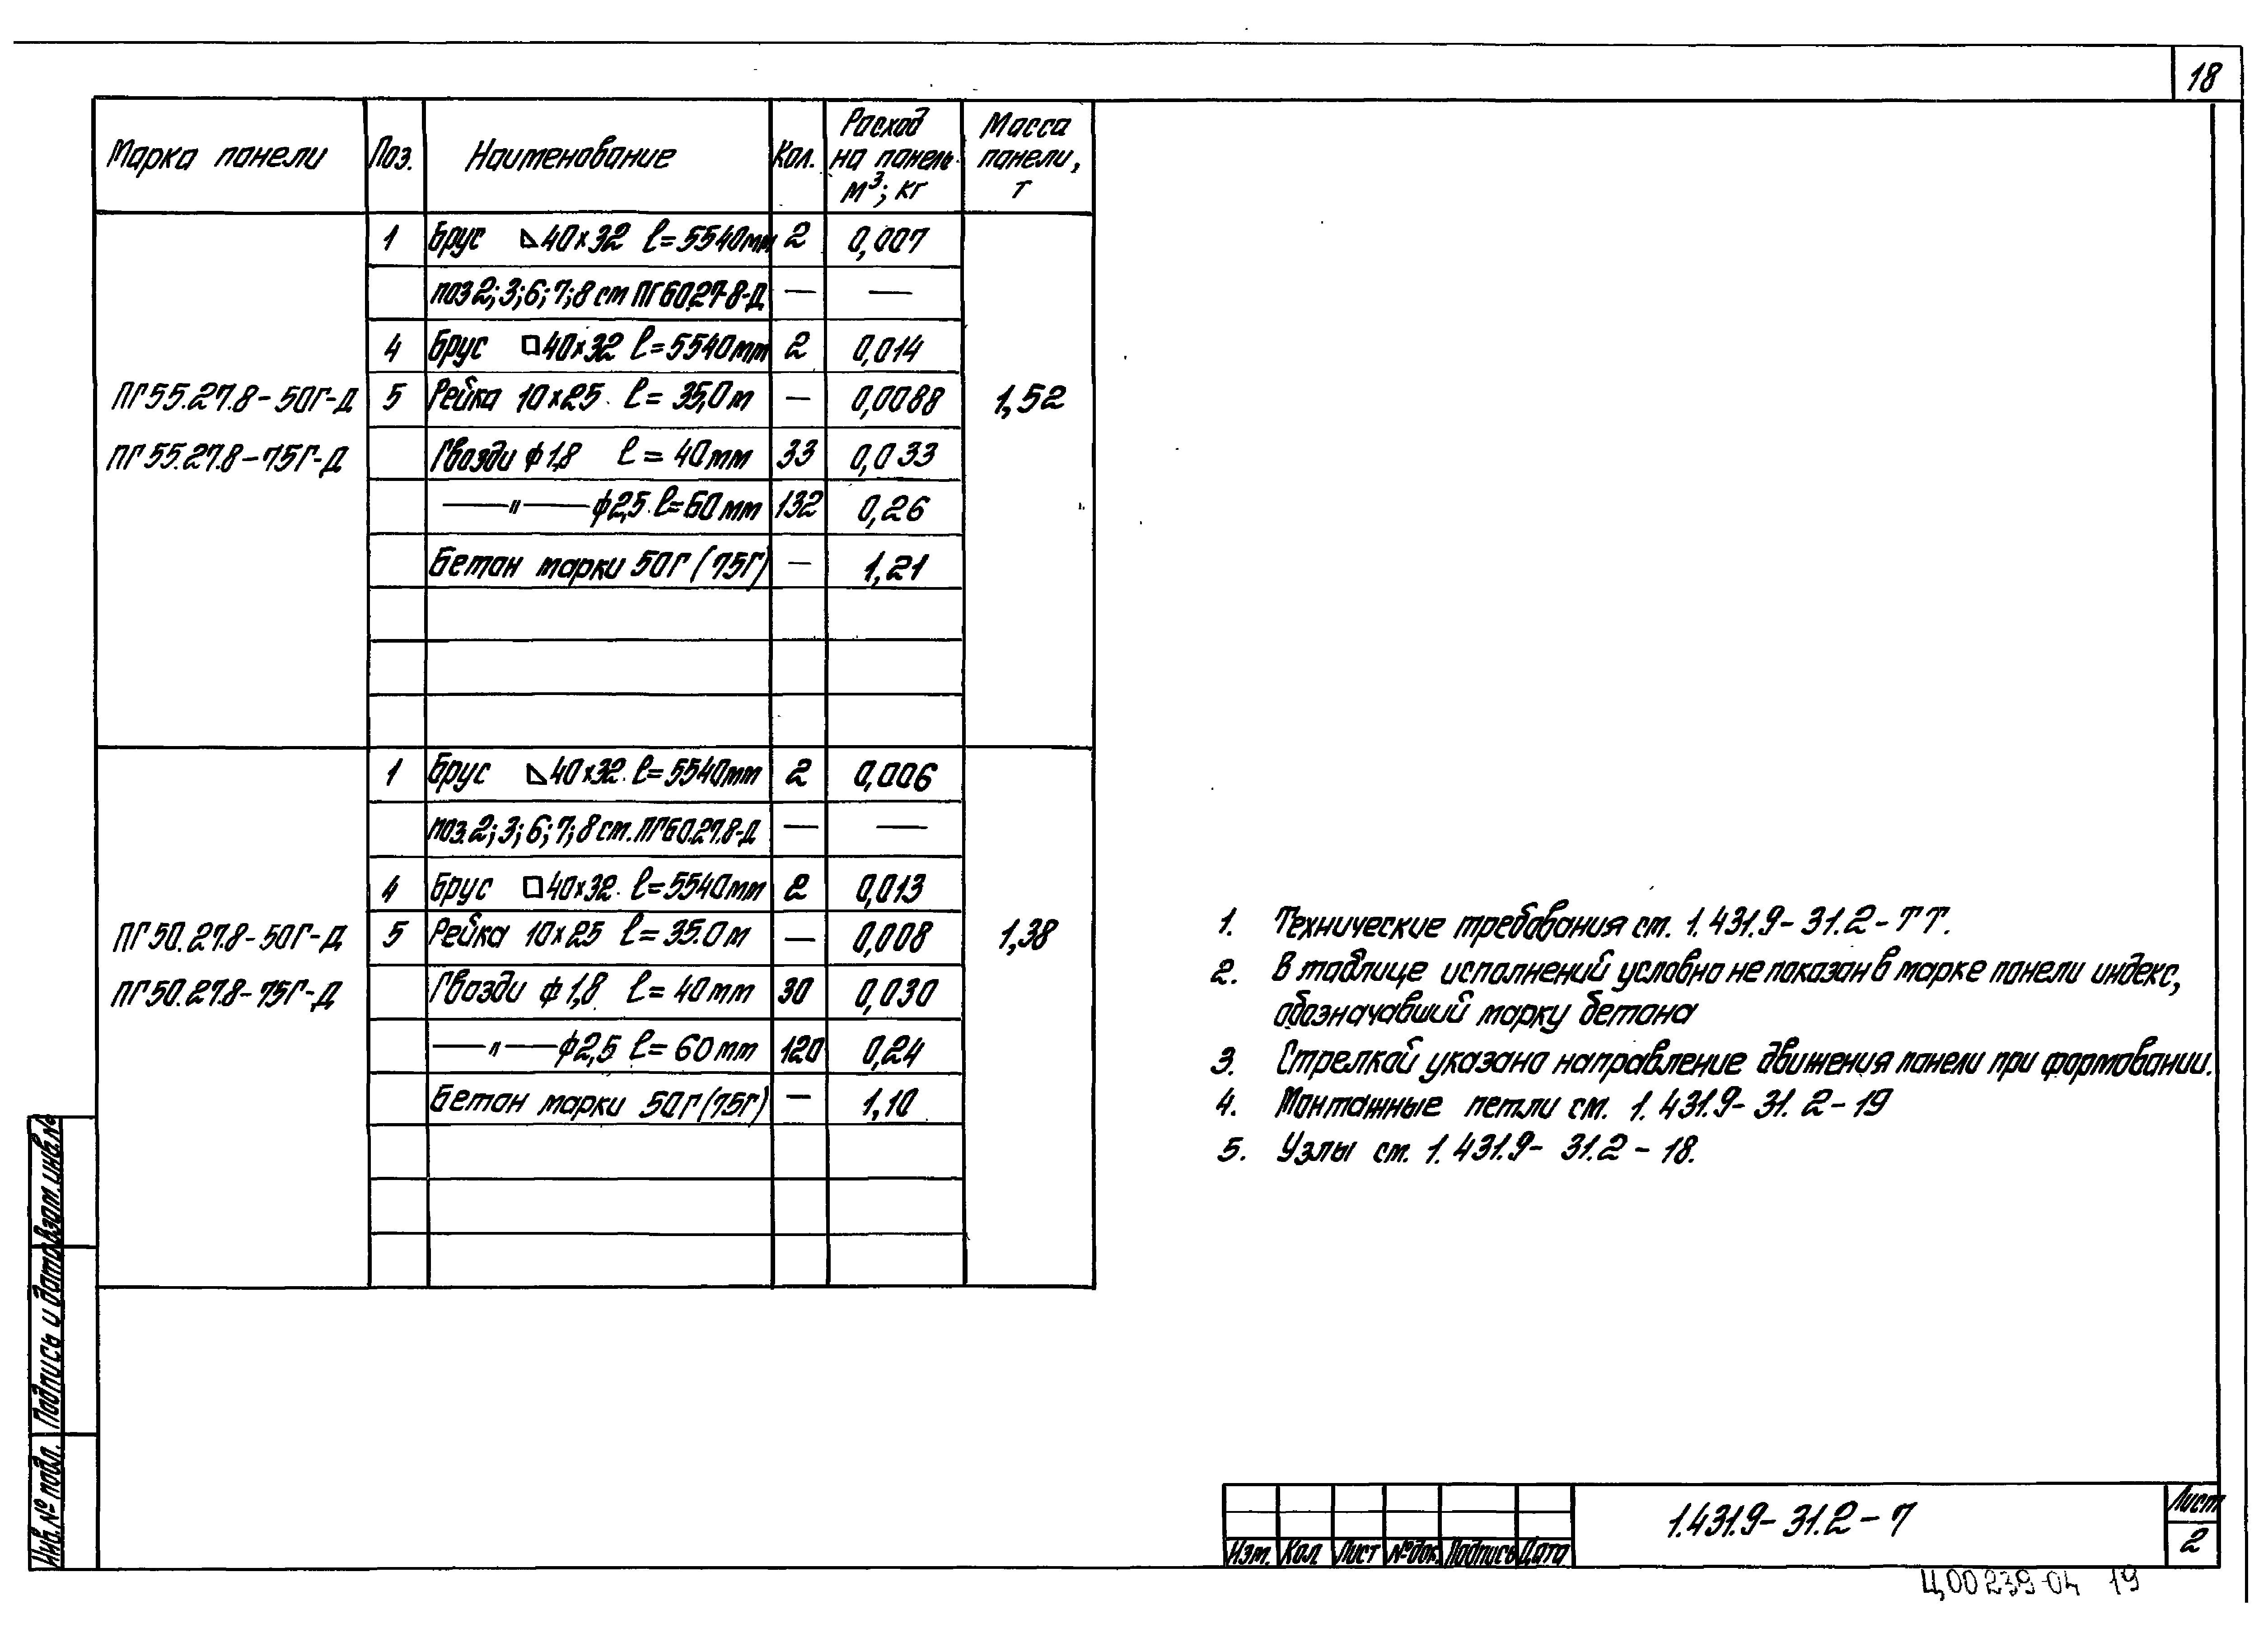 18
Марка панели Поз. Наименование Кол. Расход на панель м³; кг Масса панели, т
1 Брус ◺40×32 ℓ=5540мм 2 0,007
поз 2; 3; 6; 7; 8 см ПГ60.27.8-Д — —
4 Брус □40×32 ℓ=5540мм 2 0,014
ПГ55.27.8-50Г-Д 5 Рейка 10×25 ℓ=35,0м — 0,0088 1,52
ПГ55.27.8-75Г-Д Гвозди ф1,8 ℓ=40мм 33 0,033
—"— ф2,5 ℓ=60мм 132 0,26
Бетон марки 50Г (75Г) — 1,21
1 Брус ◺40×32 ℓ=5540мм 2 0,006
поз.2; 3; 6; 7; 8 см. ПГ60.27.8-Д — —
4 Брус □40×32 ℓ=5540мм 2 0,013
ПГ50.27.8-50Г-Д 5 Рейка 10×25 ℓ=35.0м — 0,008 1,38
ПГ50.27.8-75Г-Д Гвозди ф1,8 ℓ=40мм 30 0,030
—"— ф2,5 ℓ=60мм 120 0,24
Бетон марки 50Г (75Г) — 1,10
1. Технические требования см. 1.431.9-31.2-ТТ.
2. В таблице исполнений условно не показан в марке панели индекс,
обозначавший марку бетона
3. Стрелкой указано направление движения панели при формовании.
4. Монтажные петли см. 1.431.9-31.2-19
5. Узлы см. 1.431.9-31.2-18.
Инв.№ подл. Подпись и дата Взам.инв.№
Изм. Кол. Лист №док. Подпись Дата
1.431.9-31.2-7
Лист
2
Ц00239-04 19